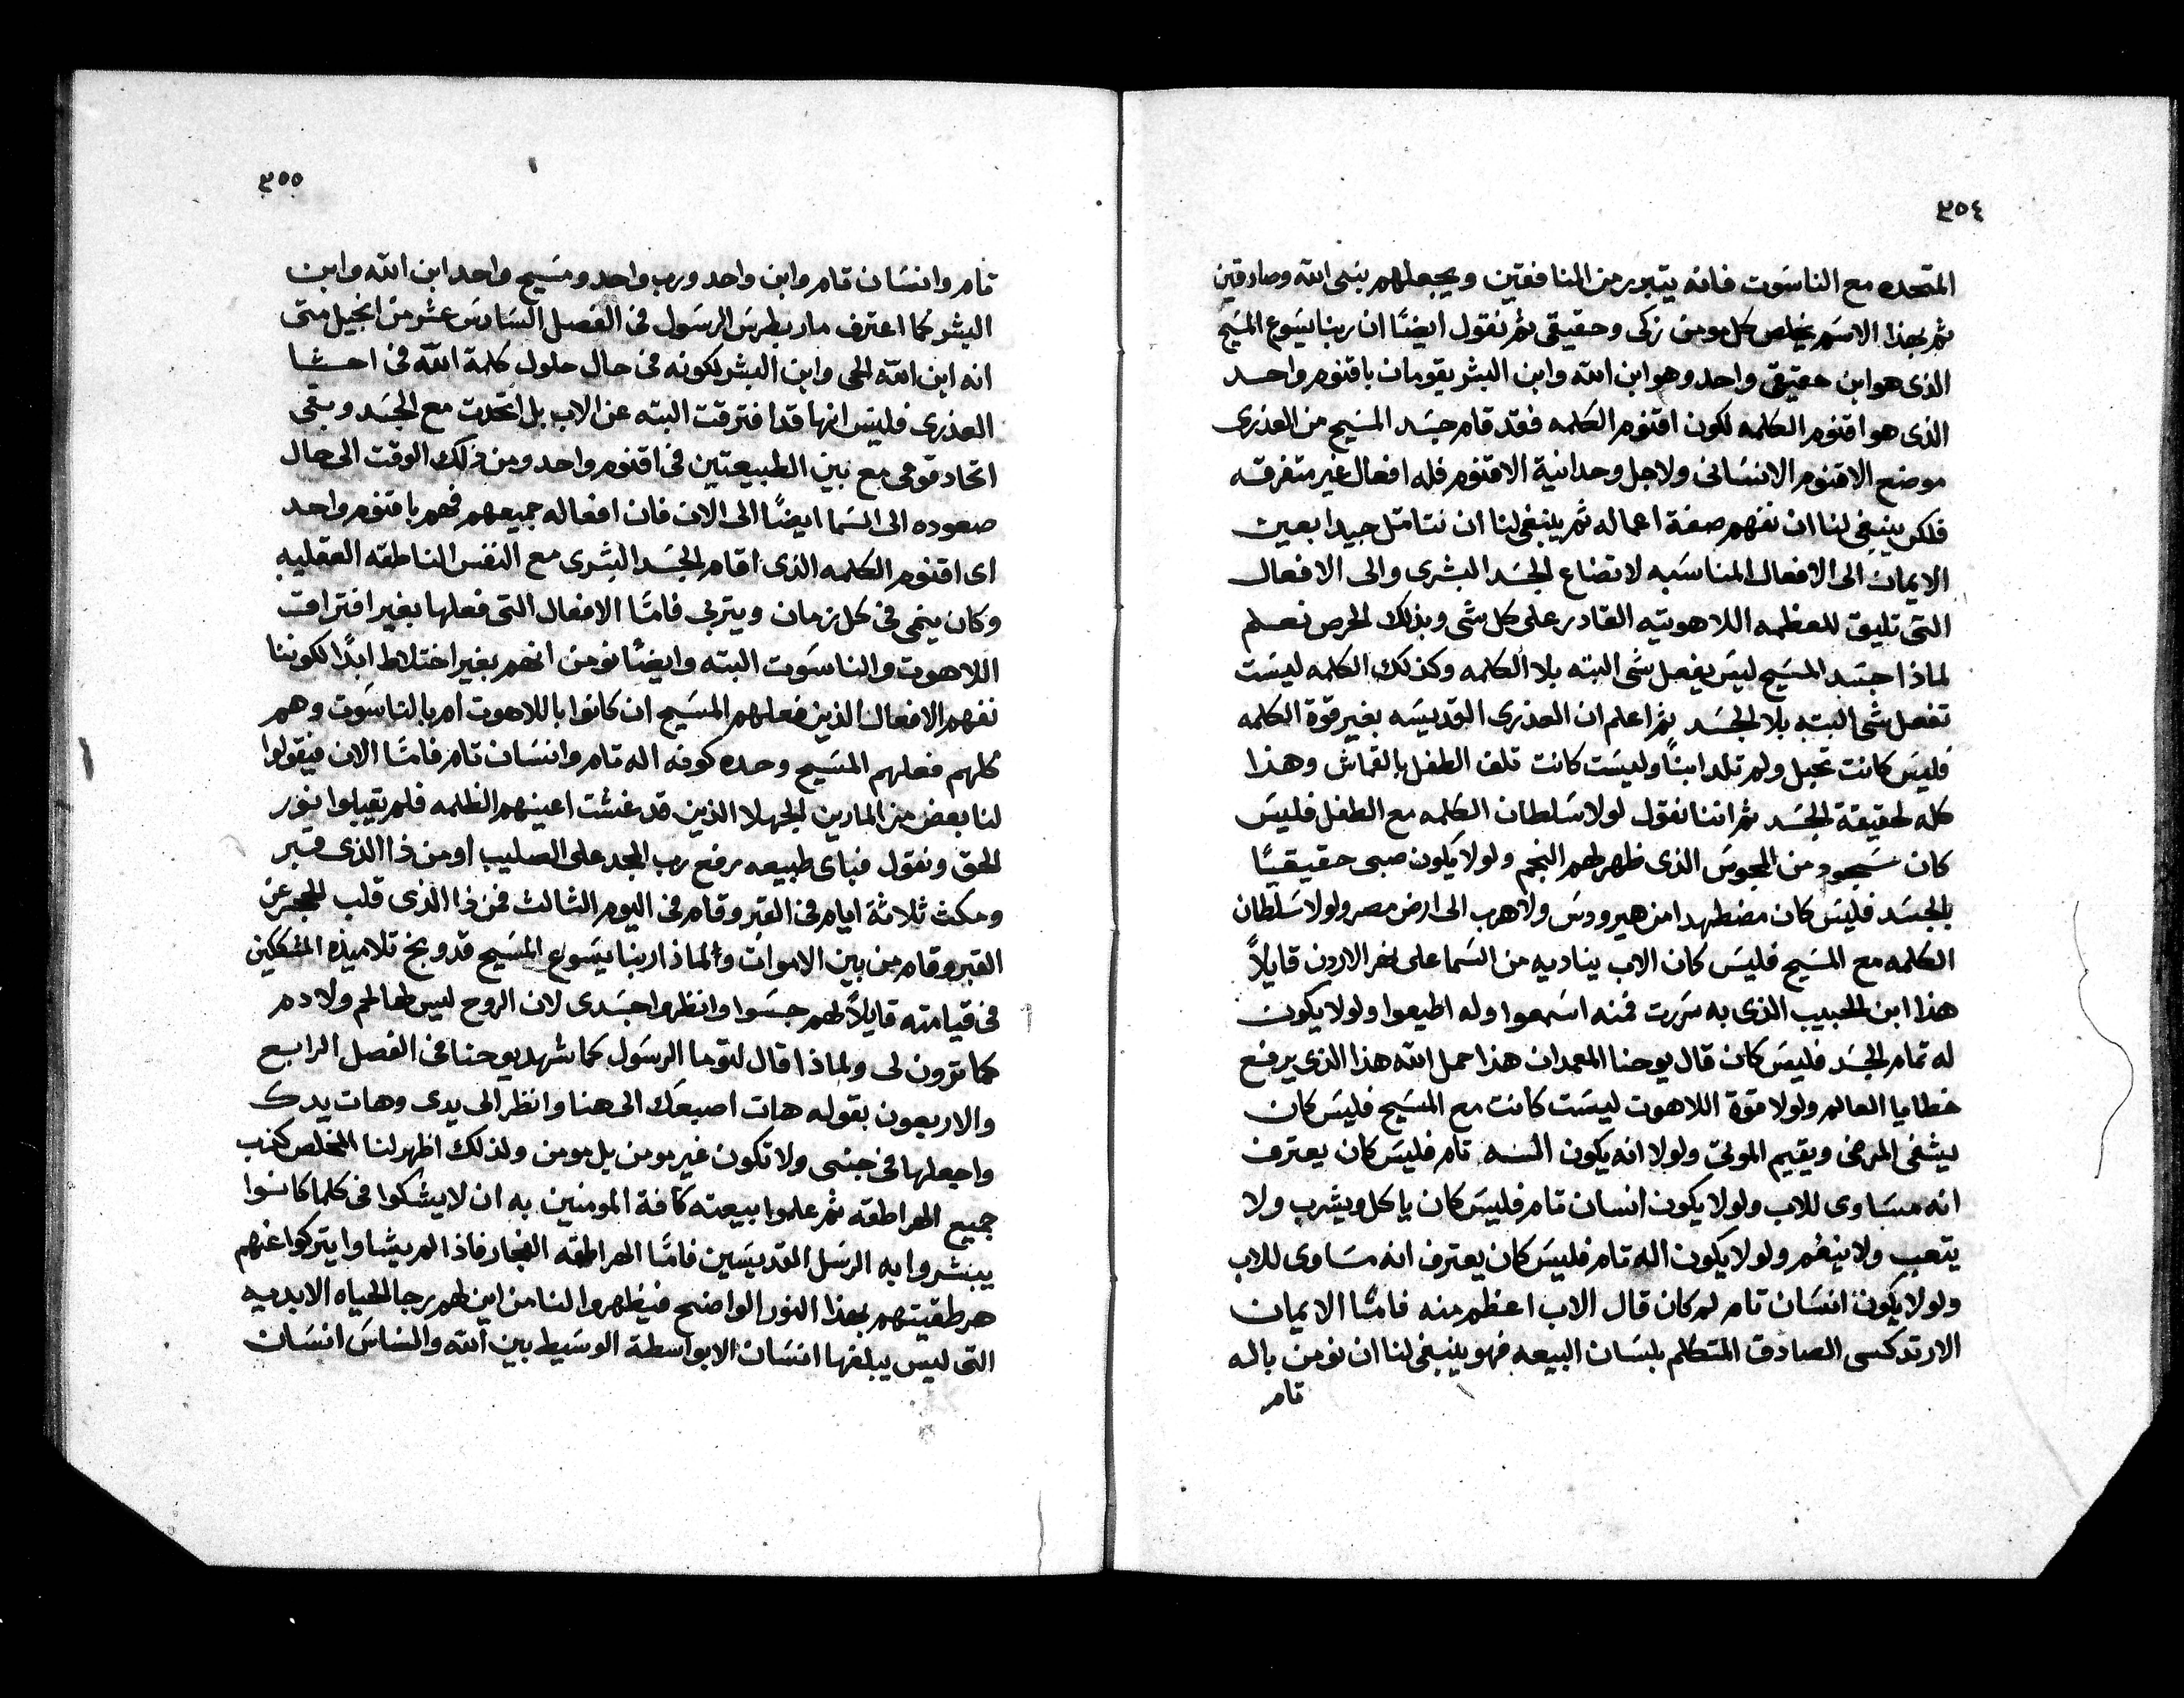 ٣٥٤
المتحده مع الناسوت فانه يتبرر من المنافقين ويجعلهم بنى الله وصادقين
ثم بهذا الاسم يخلص كل مومن زكى وحقيقى ثم نقول ايضًا ان ربنا يسوع المسيح
الذى هو ابن حقيقى واحد وهو ابن الله وابن البشر يقومان باقنوم واحد
الذى هو اقنوم الكلمه لكون اقنوم الكلمه فقد قام جسد المسيح من العذرى
موضع الاقنوم الانسانى ولاجل وحدانية الاقنوم فله افعال غير متفرقه
فلكن ينبغى لنا ان نفهم صفة اعماله ثم ينبغى لنا ان نتامل جيدا بعين
الايمان الى الافعال المناسبه لاتضاع الجسد البشرى والى الافعال
التى تليق للعظمه اللاهوتيه القادر على كل شى وبذلك الحرص نعلم
لماذا جسد المسيح ليس يفعل شى البته بلا الكلمه وكذلك الكلمه ليست
تفعل شى البته بلا الجسد ثم اعلم ان العذرى القديسه بغير قوة الكلمه
فليس كانت تحبل ولم تلد ابنًا وليست كانت تلف الطفل بالقماش وهذا
كله لحقيقة الجسد ثم اننا نقول لولا سلطان الكلمه مع الطفل فليس
كان سجود من المجوس الذى ظهر لهم النجم ولولا يكون صبى حقيقيًا
بالجسد فليس كان مضطهدا من هيرودس ولا هرب الى ارض مصر ولولا سلطان
الكلمه مع المسيح فليس كان الاب يناديه من السما على نهر الاردن قايلاً
هذا ابن الحبيب الذى به سررت فمنه اسمعوا وله اطيعوا ولولا يكون
له تمام الجسد فليس كان قال يوحنا المعمدان هذا حمل الله هذا الذى يرفع
خطايا العالم ولولا قوة اللاهوت ليست كانت مع المسيح فليس كان
يشفى المرضى ويقيم الموتى ولولا انه يكون اله تام فليس كان يعترف
انه مساوى للاب ولولا يكون انسان تام فليس كان ياكل ويشرب ولا
يتعب ولا ينغم ولولا يكون اله تام فليس كان يعترف انه مساوى للاب
ولولا يكون انسان تام لم كان قال الاب اعظم منه فامّا الايمان
الارتدكسى الصادق المتكلم بلسان البيعه فهو ينبغى لنا ان نومن باله
تام
٣٥٥
تام وانسان تام وابن واحد ورب واحد ومسيح واحد ابن الله وابن
البشر كما اعترف مار بطرس الرسول فى الفصل السادس عشر من انجيل متى
انه ابن الله الحى وابن البشر لكونه فى حال حلول كلمة الله فى احشا
العذرى فليس انها قد افترقت البته عن الاب بل اتحدت مع الجسد وبقى
اتحاد قومى مع بين الطبيعتين فى اقنوم واحد ومن ذلك الوقت الى حال
صعوده الى السما ايضًا الى الان فان افعاله جميعهم فهم باقنوم واحد
اى اقنوم الكلمه الذى اقام الجسد البشرى مع النفس الناطقه العقليه
وكان ينمى فى كل زمان ويتربى فامّا الافعال التى فعلها بغير افتراق
اللاهوت والناسوت البته وايضًا نومن انهم بغير اختلاط ابدًا لكوننا
نفهم الافعال الذين فعلهم المسيح ان كانوا باللاهوت ام بالناسوت وهم
كلهم فعلهم المسيح وحده كونه اله تام وانسان تام فامّا الان فيقولوا
لنا بعض من المارين الجهلا الذين قد غشت اعينهم الظلمه فلم يقبلوا نور
الحق ونقول فباى طبيعه رفع رب المجد على الصليب اومن ذا الذى قبر
ومكث ثلاثة ايام فى القبر وقام فى اليوم الثالث فمن ذا الذى قلب الحجر عن
القبر وقام من بين الاموات ولماذا ربنا يسوع المسيح قد وبخ تلاميذه المشككين
فى قيامته قايلاً لهم جسوا وانظروا جسدى لان الروح ليس لها لحم ولا دم
كما ترون لى ولماذا قال لتوما الرسول كما شهد يوحنا فى الفصل الرابع
والاربعون بقوله هات اصبعك الى هنا وانظر الى يدى وهات يدك
واجعلها فى جنبى ولا تكون غير مومن بل مومن ولذلك اظهر لنا المخلص كذب
جميع الهراطقه ثم علموا ببيعته كافة المومنين به ان لا يشكوا فى كلما كانوا
يبشروا به الرسل القديسين فامّا الهراطقه الفجار فاذا لم يشاوا يتركوا عنهم
هرطقيتهم بهذا النور الواضح فيظهروا لنا من اين لهم رجا الحياه الابديه
التى ليس يبلغها انسان الا بواسطة الوسيط بين الله والناس انسان